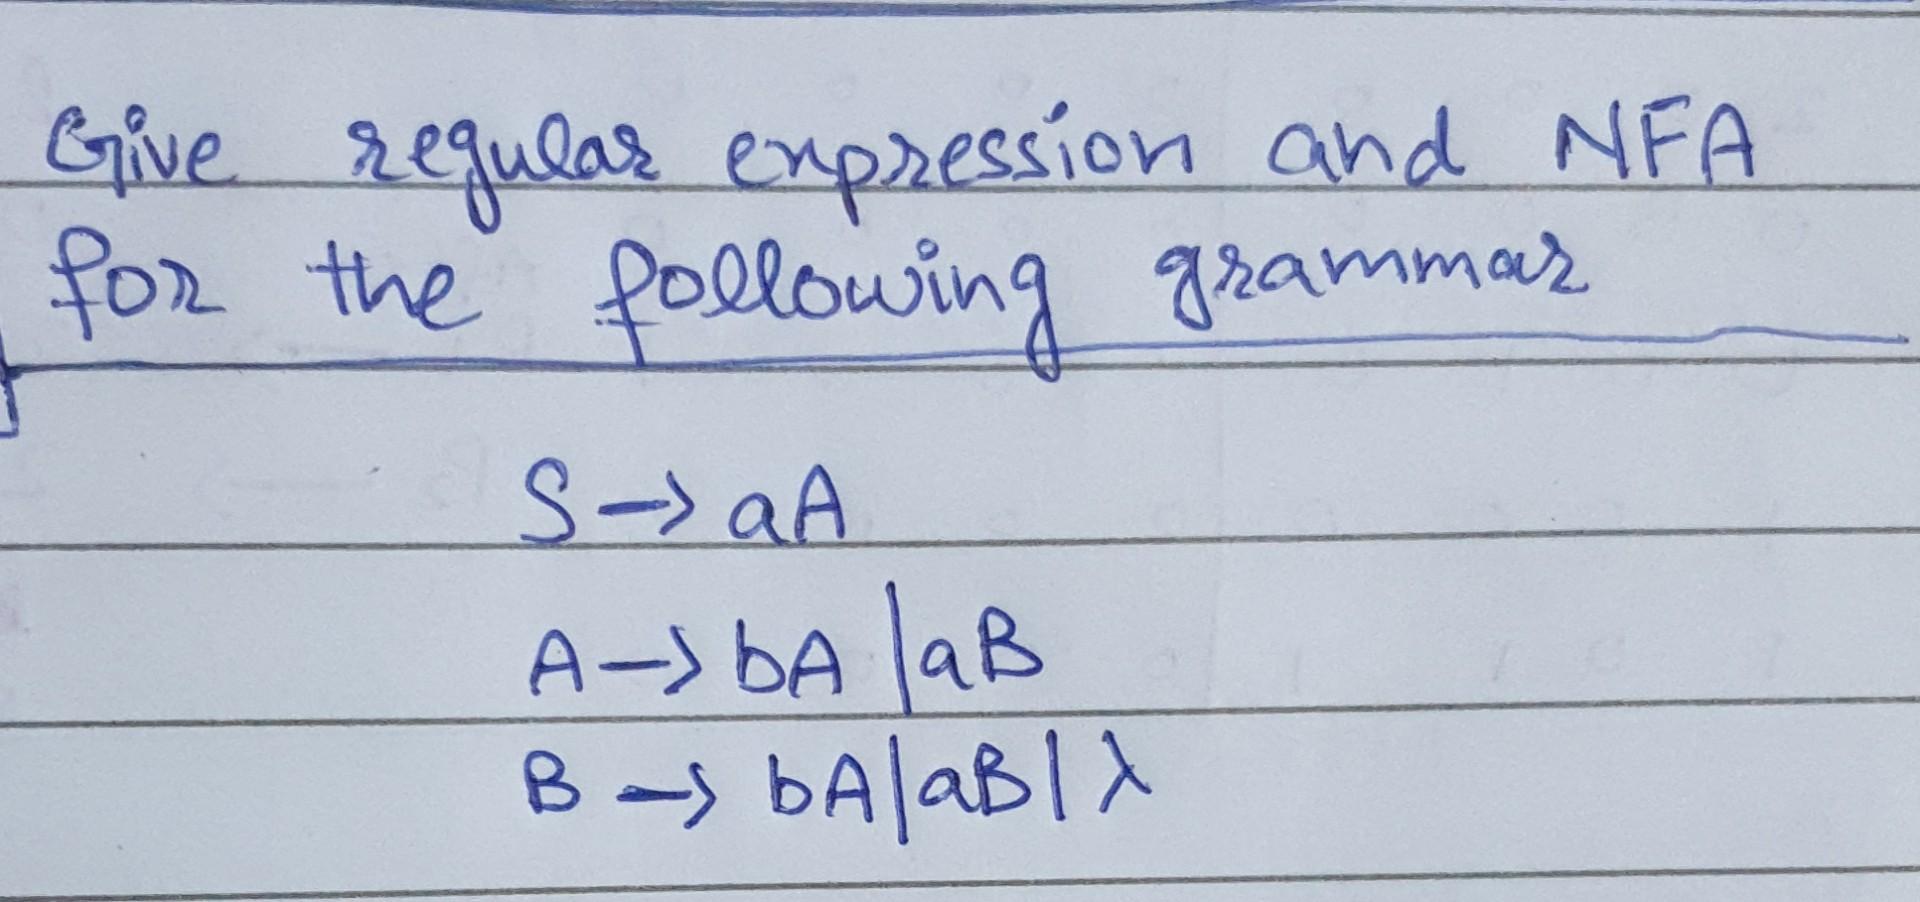 Give regular expression and NFA
for the following grammar
S -> aA
A -> bA | aB
B -> bA | aB | λ